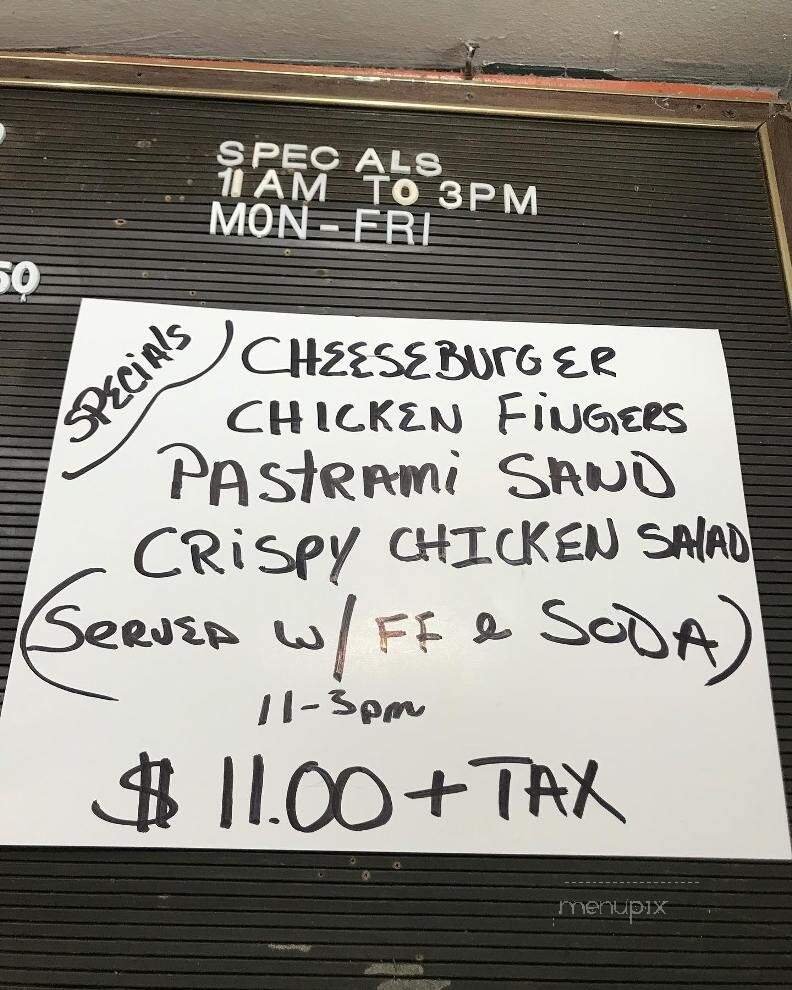 SPEC ALS
11 AM TO 3PM
MON-FRI
50
SPECIALS
CHEESEBURGER
CHICKEN FINGERS
PASTRAMI SAND
CRISPY CHICKEN SALAD
(SERVED W/ FF & SODA)
11-3pm
$ 11.00 + TAX
menupix